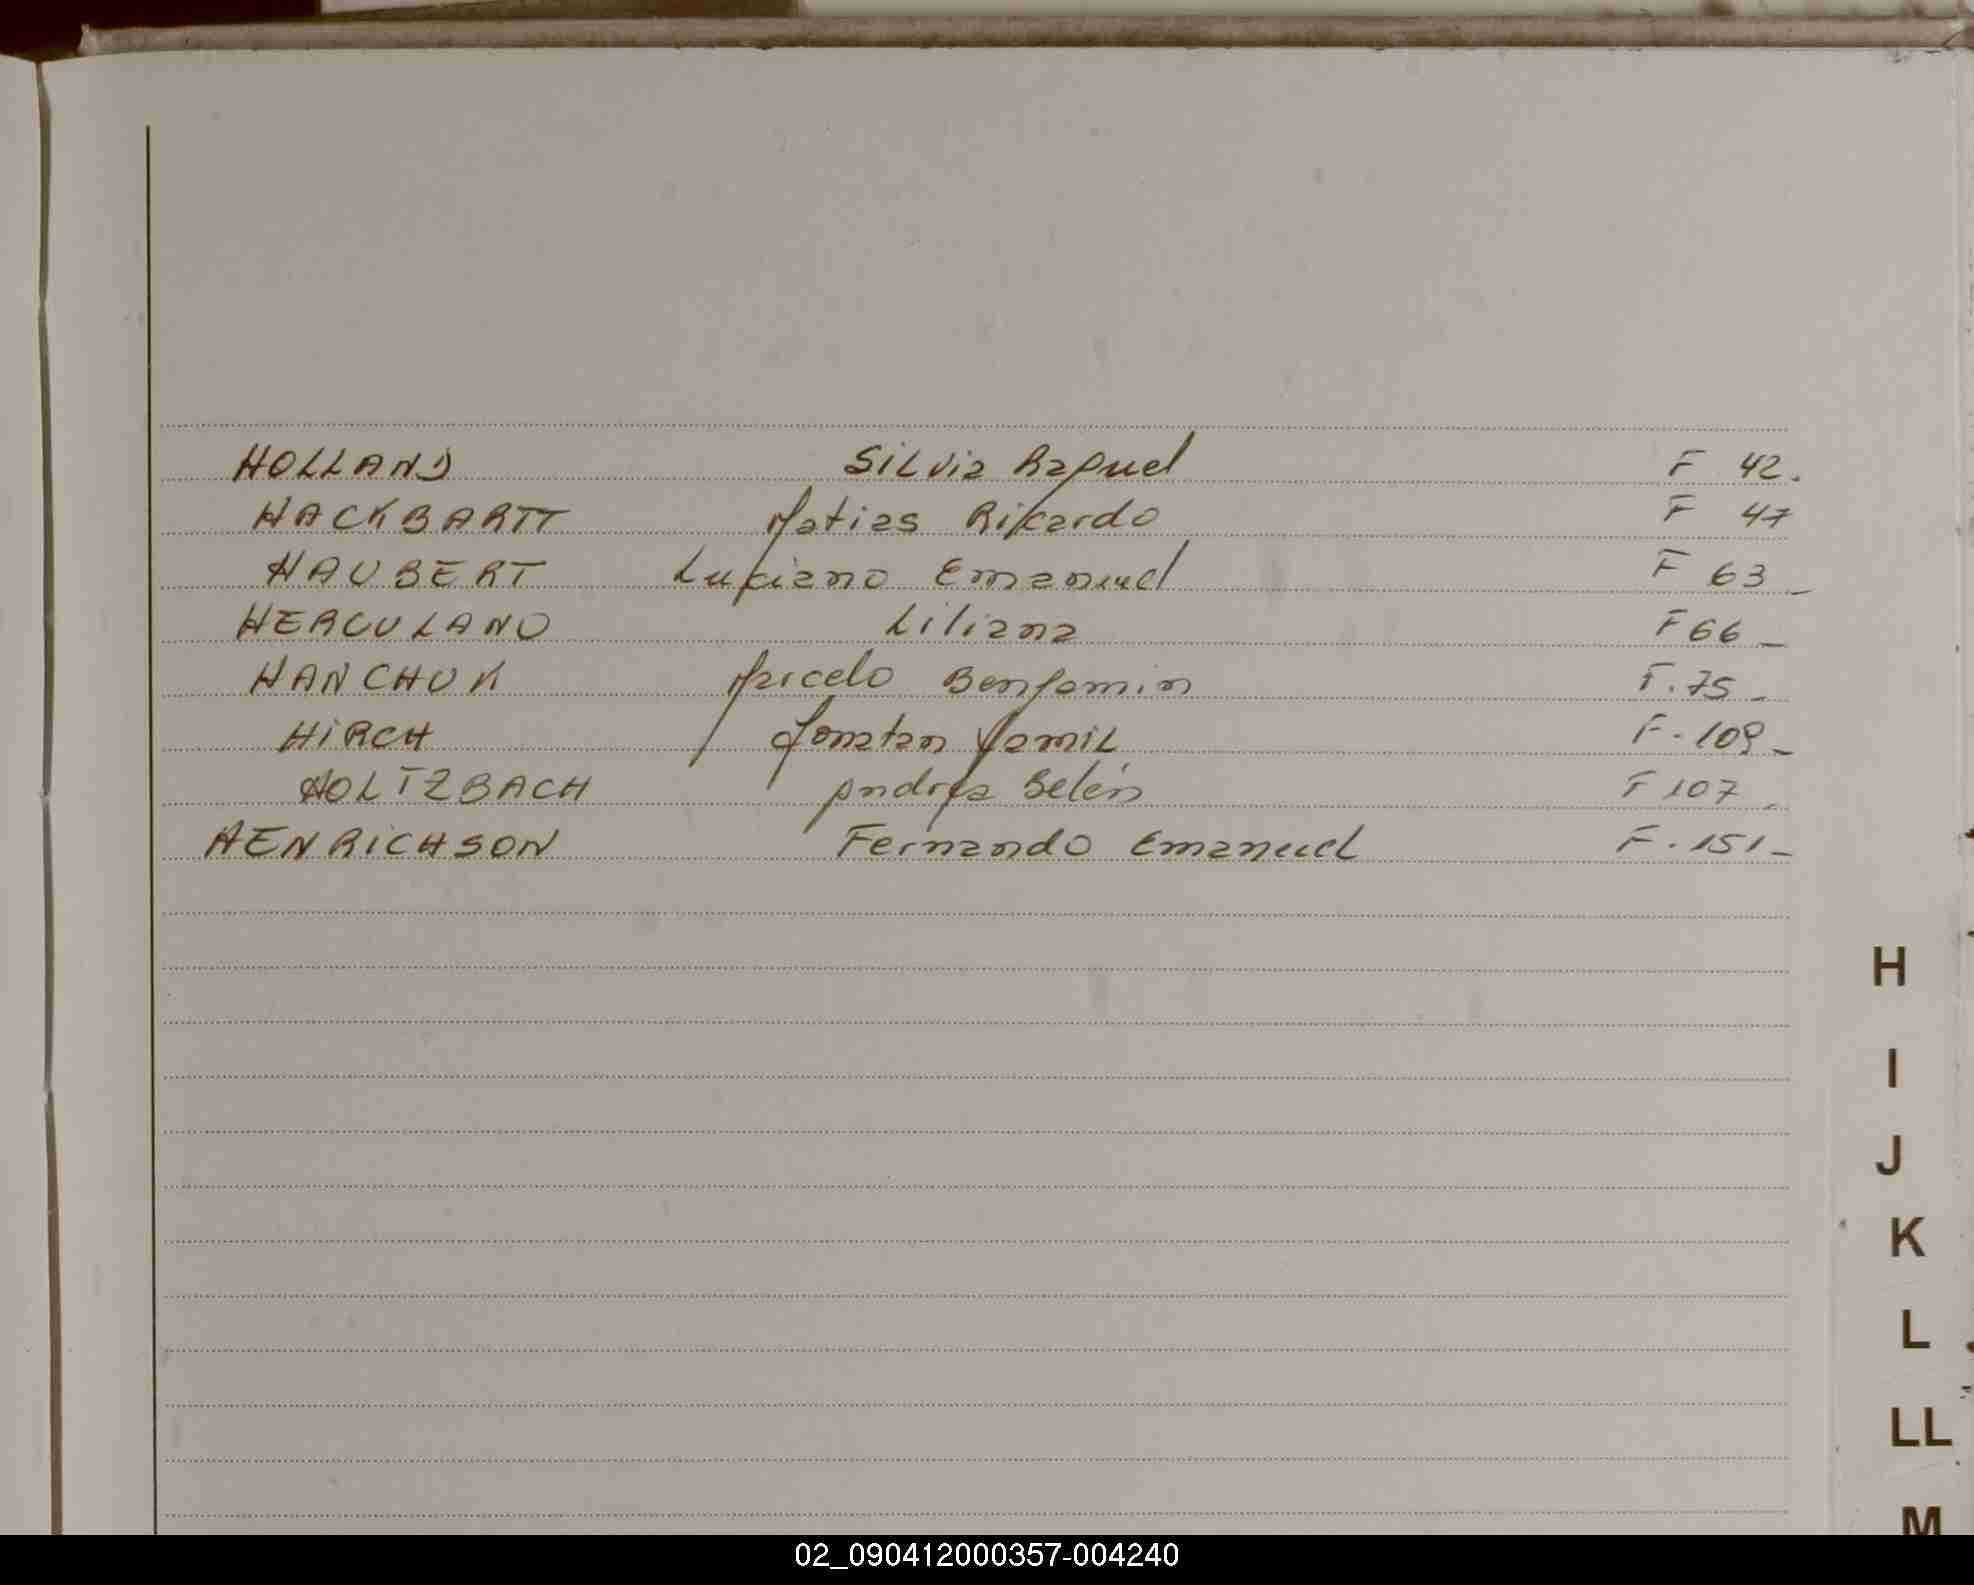 HOLLAND Silvia Raquel F 42.
HACKBARTT Matias Ricardo F 47
HAUBERT Luciano Emanuel F 63_
HERCULANO Liliana F 66_
HANCHUK Marcelo Benjamin F. 75_
HIRCH Jonatan Yamil F. 109_
HOLTZBACH Andrea Belén F 107_
HENRICHSON Fernando Emanuel F. 151_
H
I
J
K
L
LL
M
02_090412000357-004240